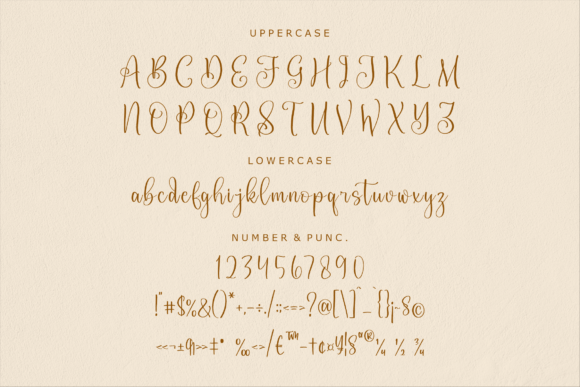 UPPERCASE
ABCDEFGHIJKLM
NOPQRSTUVWXYZ
LOWERCASE
abcdefghijklmnopqrstuvwxyz
NUMBER & PUNC.
1234567890
!"#$%&()*+,-÷./:;<=>?@[\]^_`{}¡~§©
‹‹¬±¶››‡° ‰‹›/€™–†¢¤¥¦§ª®¼ ½ ¾